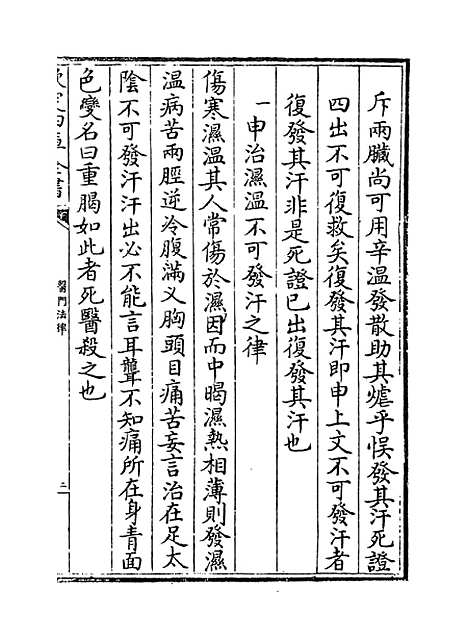 斥兩臟尚可用辛溫發散助其爐乎悮發其汗死證
四出不可復救矣復發其汗即申上文不可發汗者
復發其汗非是死證已出復發其汗也
一申治濕溫不可發汗之律
傷寒濕溫其人常傷於濕因而中暍濕熱相薄則發濕
溫病苦兩脛逆冷腹滿义胸頭目痛苦妄言治在足太
陰不可發汗汗出必不能言耳聾不知痛所在身青面
色變名曰重暍如此者死醫殺之也
醫門法律
二